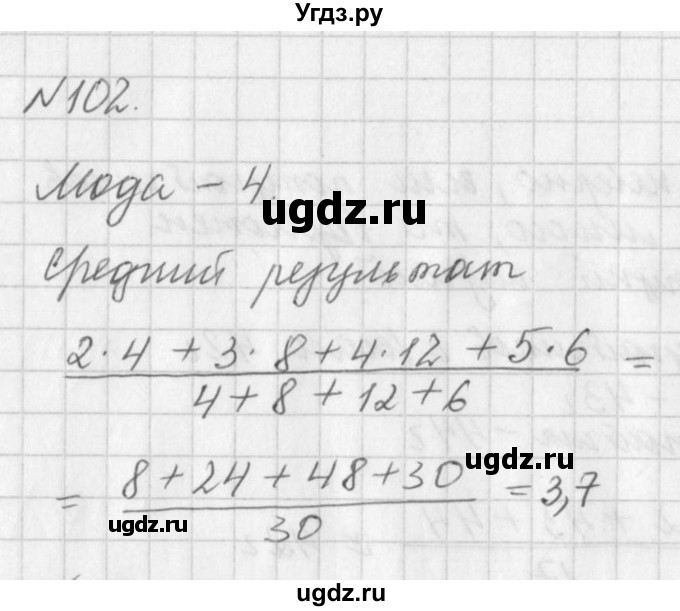 Угдз.ру
N102.
Мода – 4.
ugdz.ru
средний результат
2·4 + 3·8 + 4·12 + 5·6 =
4 + 8 + 12 + 6
ugdz.ru
= 8 + 24 + 48 + 30 = 3,7
ugdz.ru
30
ugdz.ru